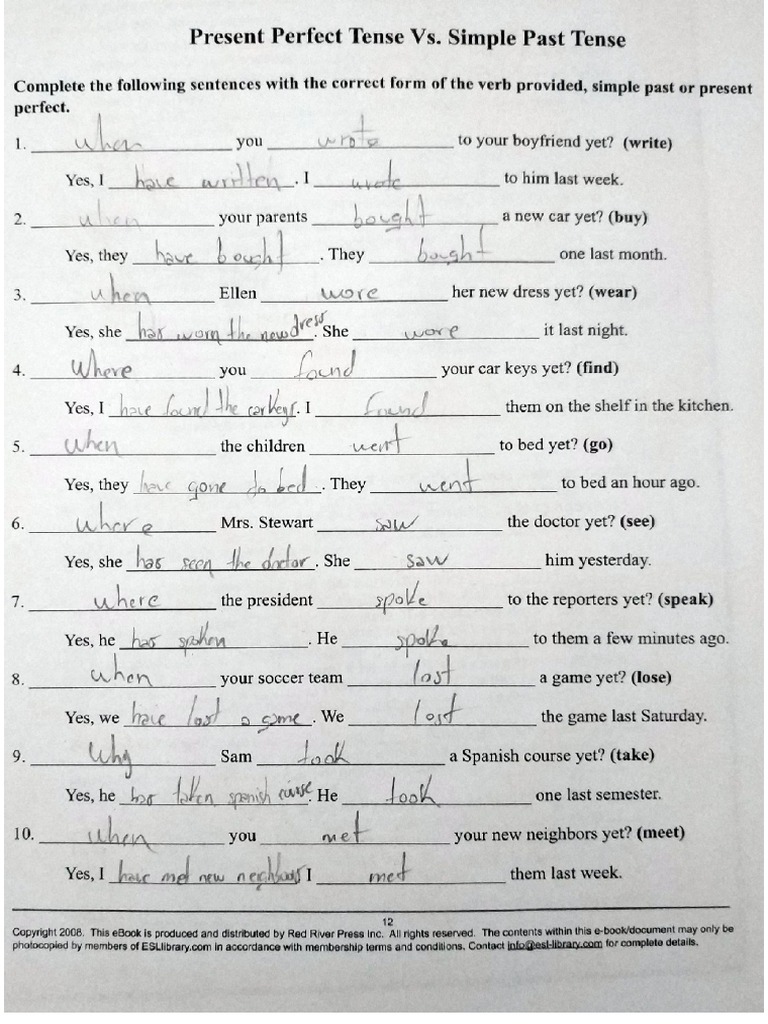 Present Perfect Tense Vs. Simple Past Tense
Complete the following sentences with the correct form of the verb provided, simple past or present
perfect.
1. when you wrote to your boyfriend yet? (write)
Yes, I have written . I wrote to him last week.
2. when your parents bought a new car yet? (buy)
Yes, they have bought . They bought one last month.
3. when Ellen wore her new dress yet? (wear)
Yes, she has worn the new dress. She wore it last night.
4. Where you found your car keys yet? (find)
Yes, I have found the car keys. I found them on the shelf in the kitchen.
5. when the children went to bed yet? (go)
Yes, they have gone to bed . They went to bed an hour ago.
6. where Mrs. Stewart saw the doctor yet? (see)
Yes, she has seen the doctor . She saw him yesterday.
7. where the president spoke to the reporters yet? (speak)
Yes, he has spoken . He spoke to them a few minutes ago.
8. when your soccer team lost a game yet? (lose)
Yes, we have lost a game . We lost the game last Saturday.
9. Why Sam took a Spanish course yet? (take)
Yes, he has taken spanish course. He took one last semester.
10. when you met your new neighbors yet? (meet)
Yes, I have met new neighbors I met them last week.
12
Copyright 2008. This eBook is produced and distributed by Red River Press Inc. All rights reserved. The contents within this e-book/document may only be
photocopied by members of ESLlibrary.com in accordance with membership terms and conditions. Contact info@esl-library.com for complete details.